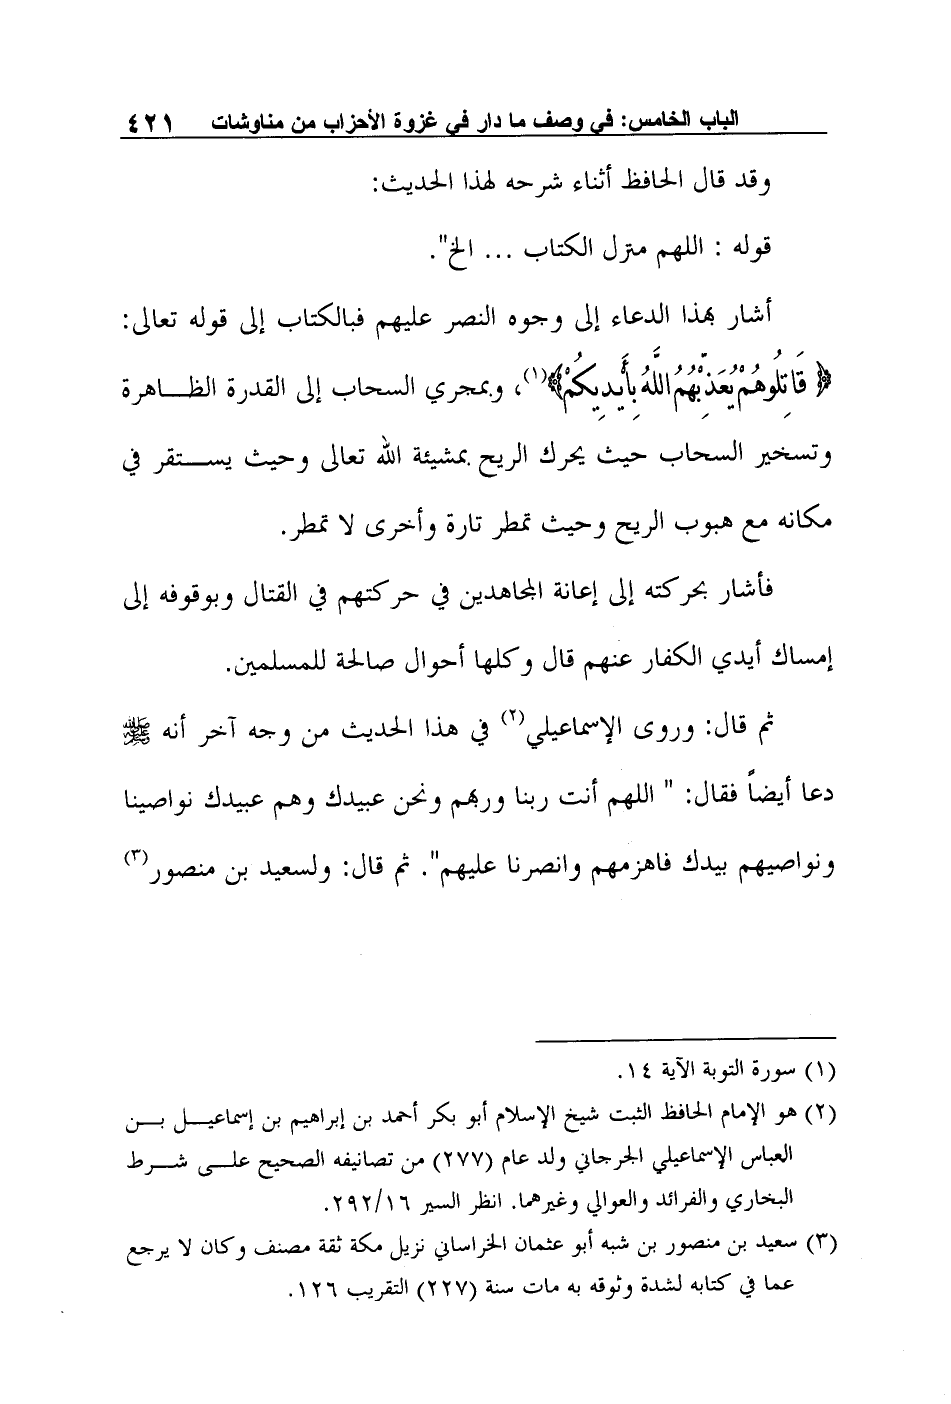 الباب الخامس: في وصف ما دار في غزوة الأحزاب من مناوشات ٤٢١
وقد قال الحافظ أثناء شرحه لهذا الحديث:
قوله : اللهم منزل الكتاب ... الخ".
أشار بهذا الدعاء إلى وجوه النصر عليهم فبالكتاب إلى قوله تعالى:
﴿ قَاتِلُوهُمْ يُعَذِّبْهُمُ اللَّهُ بِأَيْدِيكُمْ﴾(١)، وبمجري السحاب إلى القدرة الظـــاهرة
وتسخير السحاب حيث يحرك الريح بمشيئة الله تعالى وحيث يســـتقر في
مكانه مع هبوب الريح وحيث تمطر تارة وأخرى لا تمطر.
فأشار بحركته إلى إعانة المجاهدين في حركتهم في القتال وبوقوفه إلى
إمساك أيدي الكفار عنهم قال وكلها أحوال صالحة للمسلمين.
ثم قال: وروى الإسماعيلي(٢) في هذا الحديث من وجه آخر أنه ﷺ
دعا أيضاً فقال: " اللهم أنت ربنا وربهم ونحن عبيدك وهم عبيدك نواصينا
ونواصيهم بيدك فاهزمهم وانصرنا عليهم". ثم قال: ولسعيد بن منصور(٣)
(١) سورة التوبة الآية ١٤.
(٢) هو الإمام الحافظ الثبت شيخ الإسلام أبو بكر أحمد بن إبراهيم بن إسماعيـــل بـــن
العباس الإسماعيلي الجرجاني ولد عام (٢٧٧) من تصانيفه الصحيح علـــى شـــرط
البخاري والفرائد والعوالي وغيرهما. انظر السير ٢٩٢/١٦.
(٣) سعيد بن منصور بن شبه أبو عثمان الخراساني نزيل مكة ثقة مصنف وكان لا يرجع
عما في كتابه لشدة وثوقه به مات سنة (٢٢٧) التقريب ١٢٦.